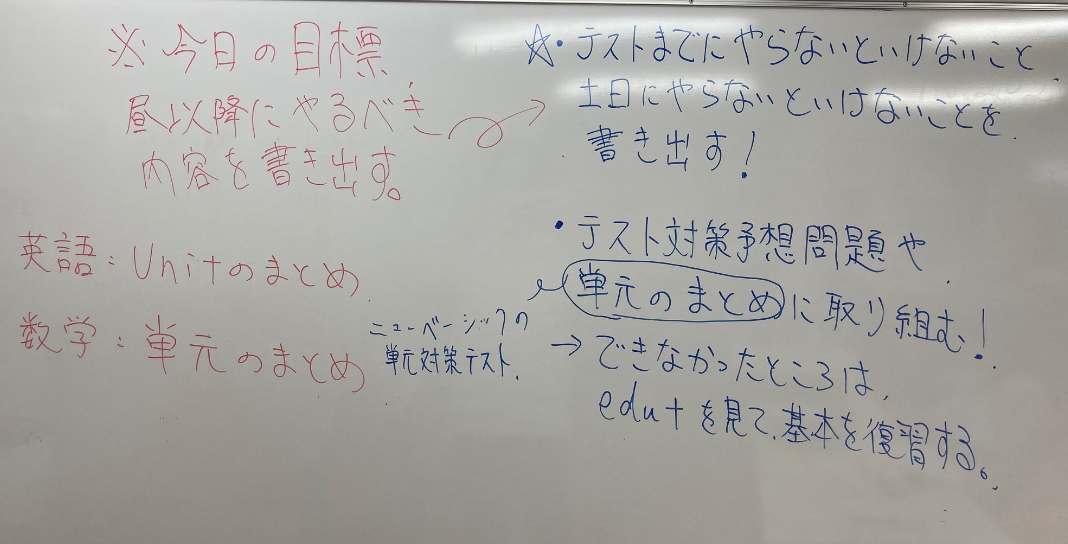 ※今日の目標
昼以降にやるべき
内容を書き出す。
英語：Unitのまとめ
数学：単元のまとめ
☆・テストまでにやらないといけないこと
土日にやらないといけないことを
書き出す！
・テスト対策予想問題や
単元のまとめに取り組む！
ニューベーシックの
単元対策テスト
→できなかったところは、
edu+を見て、基本を復習する。